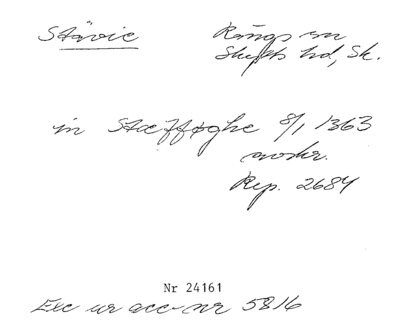 Stävie Rängs sn
Skytts hd, Sk.
in Stæfføghe 8/1 1363
avskr.
Rep. 2684
Nr 24161
Exc ur acc-nr 5816